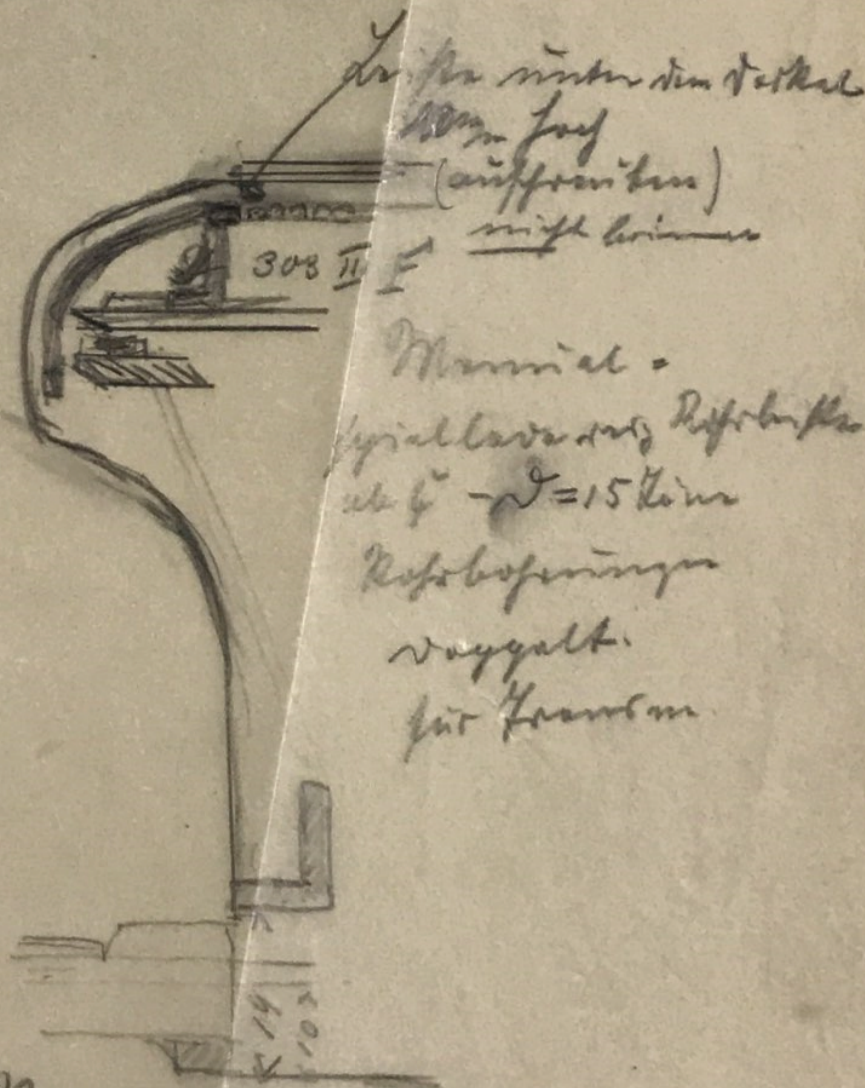 Leiste unter dem Deckel
10 mm hoch
(aufschrauben)
nicht leimen
303 II F
Manual =
Rohrleiste
ab C - D = 15 Töne
Rohrbohrungen
doppelt.
für Transm
14
10